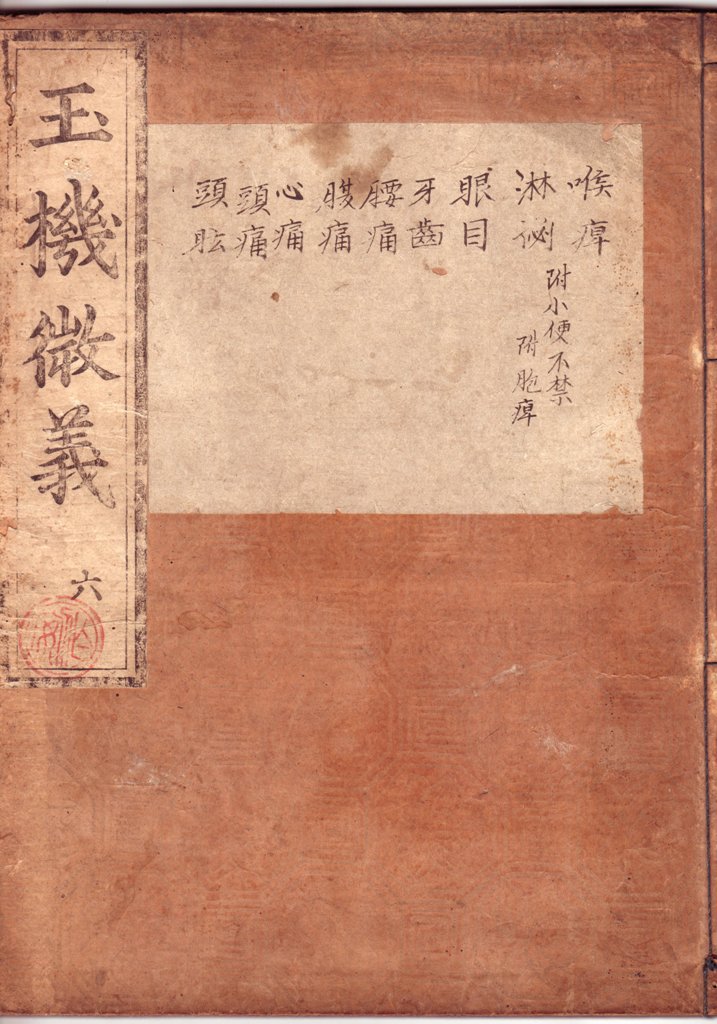 喉痺
淋祕
附小便不禁
附胞痺
眼目
牙齒
腰痛
腹痛
心痛
頭痛
頭眩
玉機微義
六